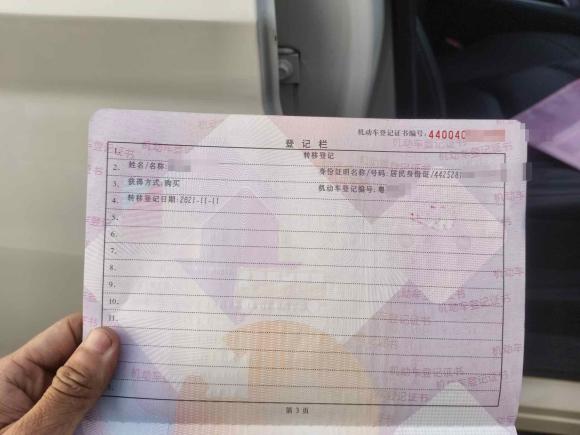 机动车登记证书编号:440040
登记栏
1. 转移登记
2. 姓名/名称: 身份证明名称/号码:居民身份证/442528
3. 获得方式:购买 机动车登记编号:粤
4. 转移登记日期:2021-11-11
5.
6.
7.
8.
9.
10.
11.
第3页
机动车登记证书
机动车登记证书
机动车登记证书